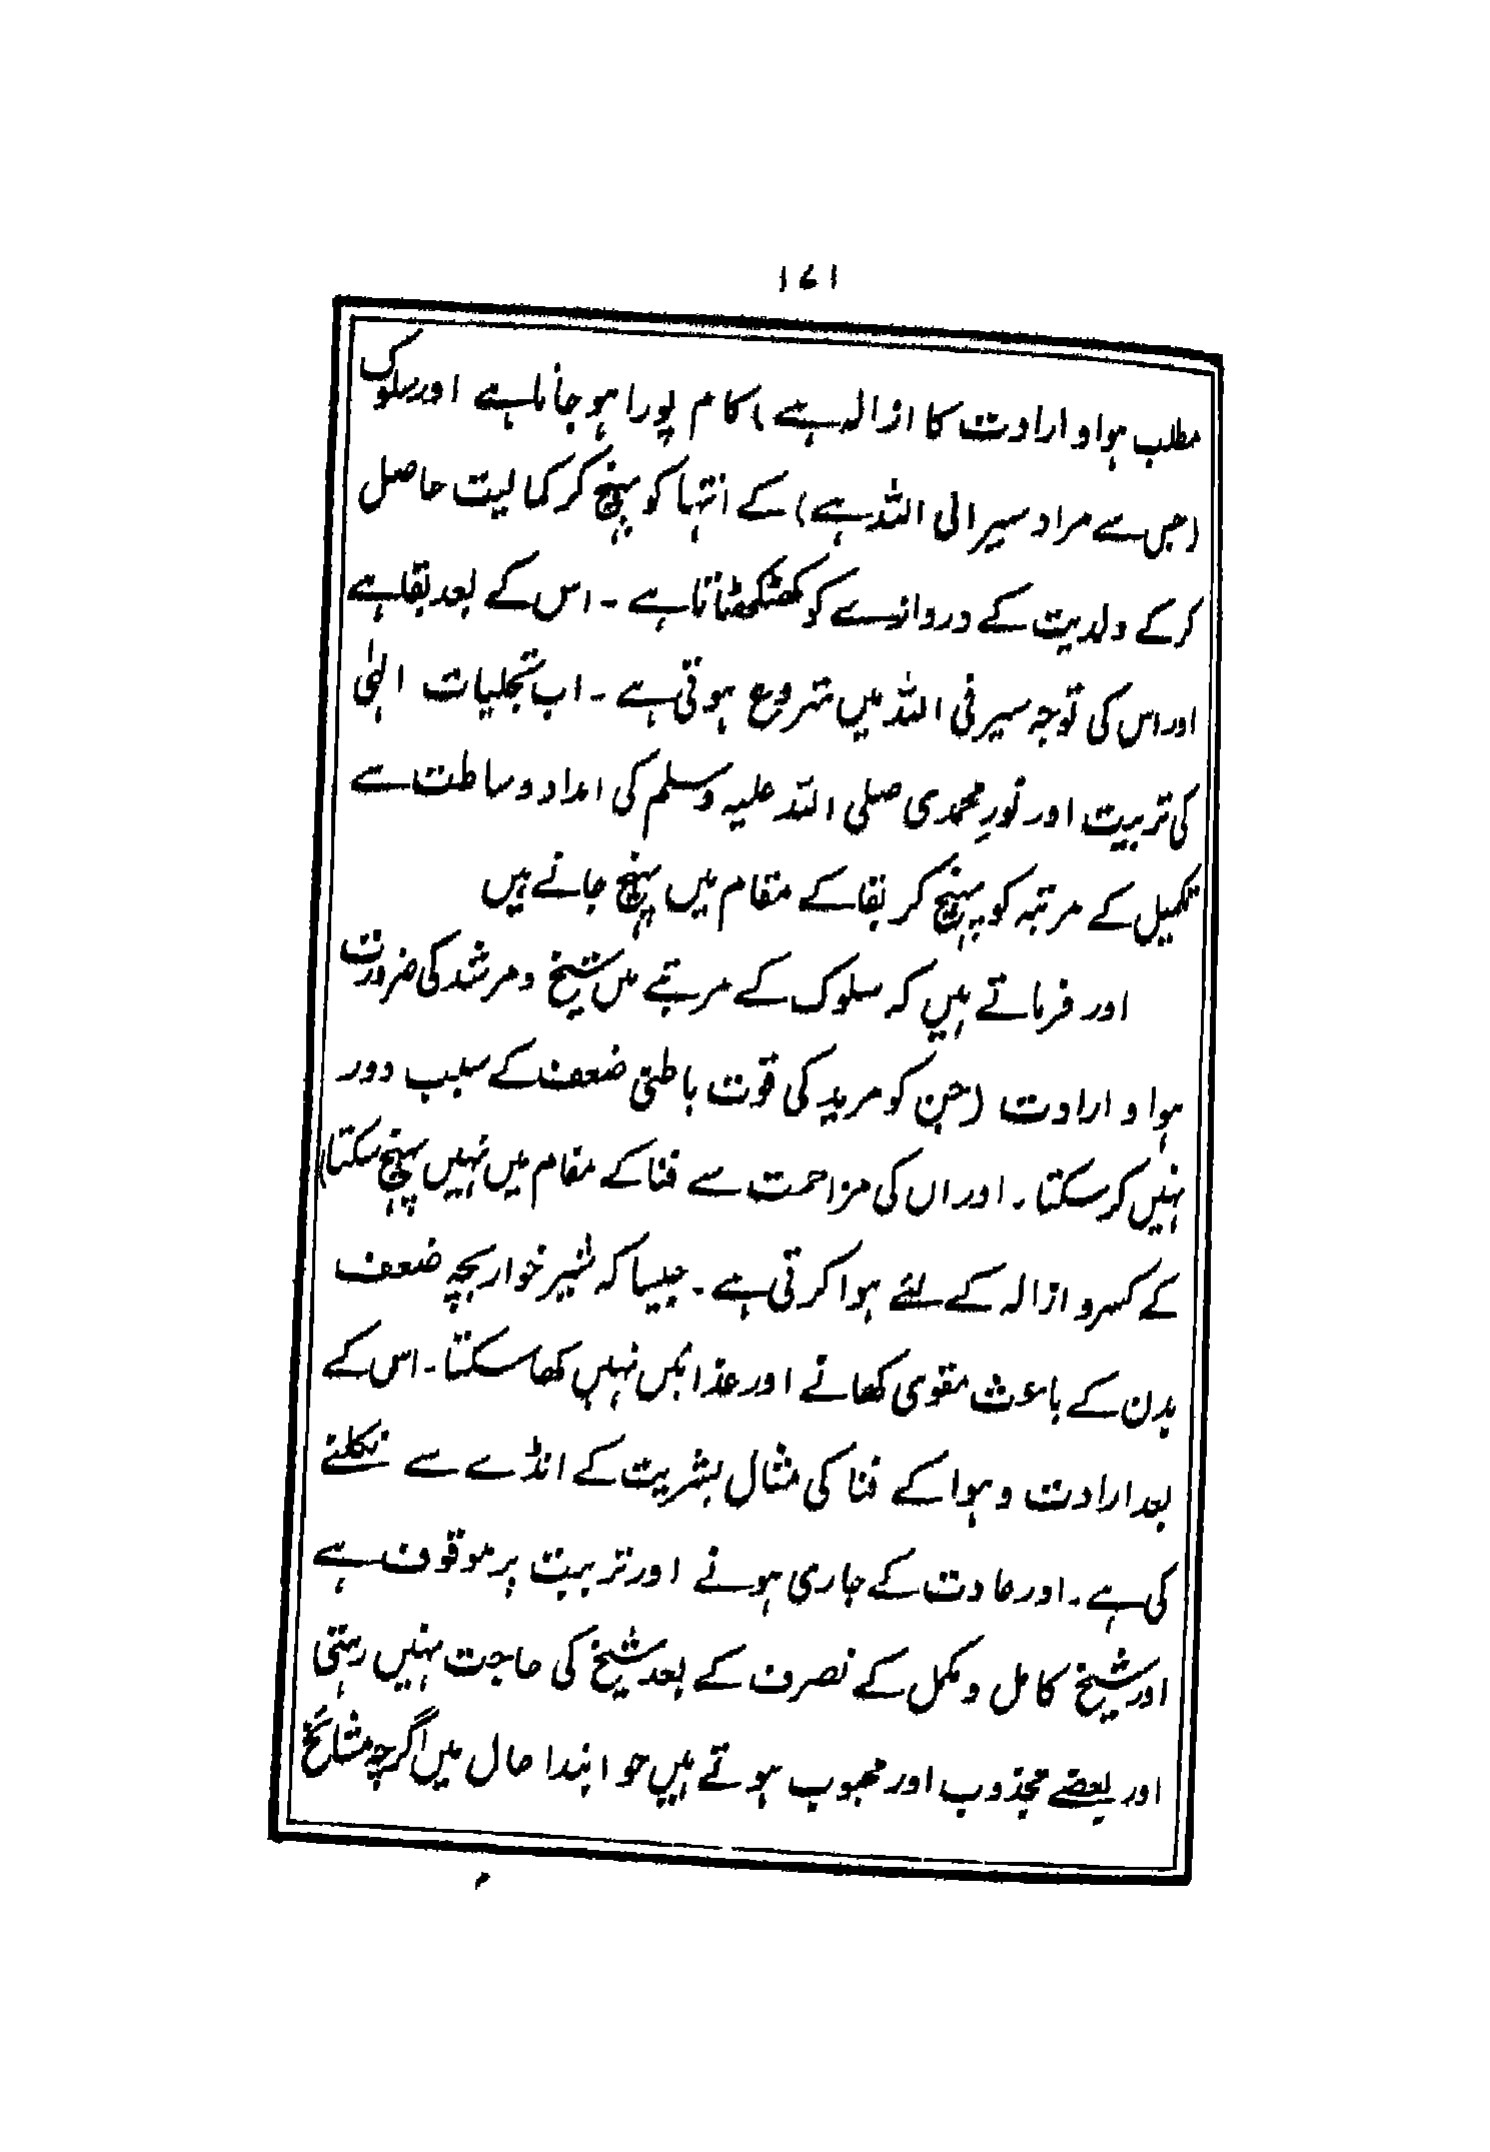 ۱۷۱
مطلب ہوا و ارادت کا ازالہ ہے) کام پورا ہو جاتا ہے اور سلوک
(جس سے مراد سیر الی اللہ ہے) کے انتہا کو پہنچ کر کمالیت حاصل
کرکے ولدیت کے دروازے کو کھٹکھٹاتا ہے ۔ اس کے بعد بقا ہے
اور اس کی توجہ سیر فی اللہ میں شروع ہوتی ہے ۔ اب تجلیات الٰہی
کی تربیت اور نورِ محمدی صلی اللہ علیہ وسلم کی امداد وساطت سے
تکمیل کے مرتبہ کو پہنچ کر بقا کے مقام میں پہنچ جاتے ہیں
اور فرماتے ہیں کہ سلوک کے مرتبے میں شیخ و مرشد کی ضرورت
ہوا و ارادت (جن کو مرید کی قوت باطنی ضعف کے سبب دور
نہیں کر سکتا ۔ اور ان کی مزاحمت سے فنا کے مقام میں نہیں پہنچ سکتا)
کے کسر و ازالہ کے لئے ہوا کرتی ہے ۔ جیسا کہ شیر خوار بچہ ضعف
بدن کے باعث مقوی کھانے اور غذائیں نہیں کھا سکتا ۔ اس کے
بعد ارادت و ہوا کے فنا کی مثال بشریت کے انڈے سے نکلنے
کی ہے ۔ اور عادت کے جاری ہونے اور تربیت پر موقوف ہے
اور شیخ کامل و مکمل کے تصرف کے بعد شیخ کی حاجت نہیں رہتی
اور بعضے مجذوب اور محبوب ہوتے ہیں جو ابتدا حال میں اگرچہ مشائخ